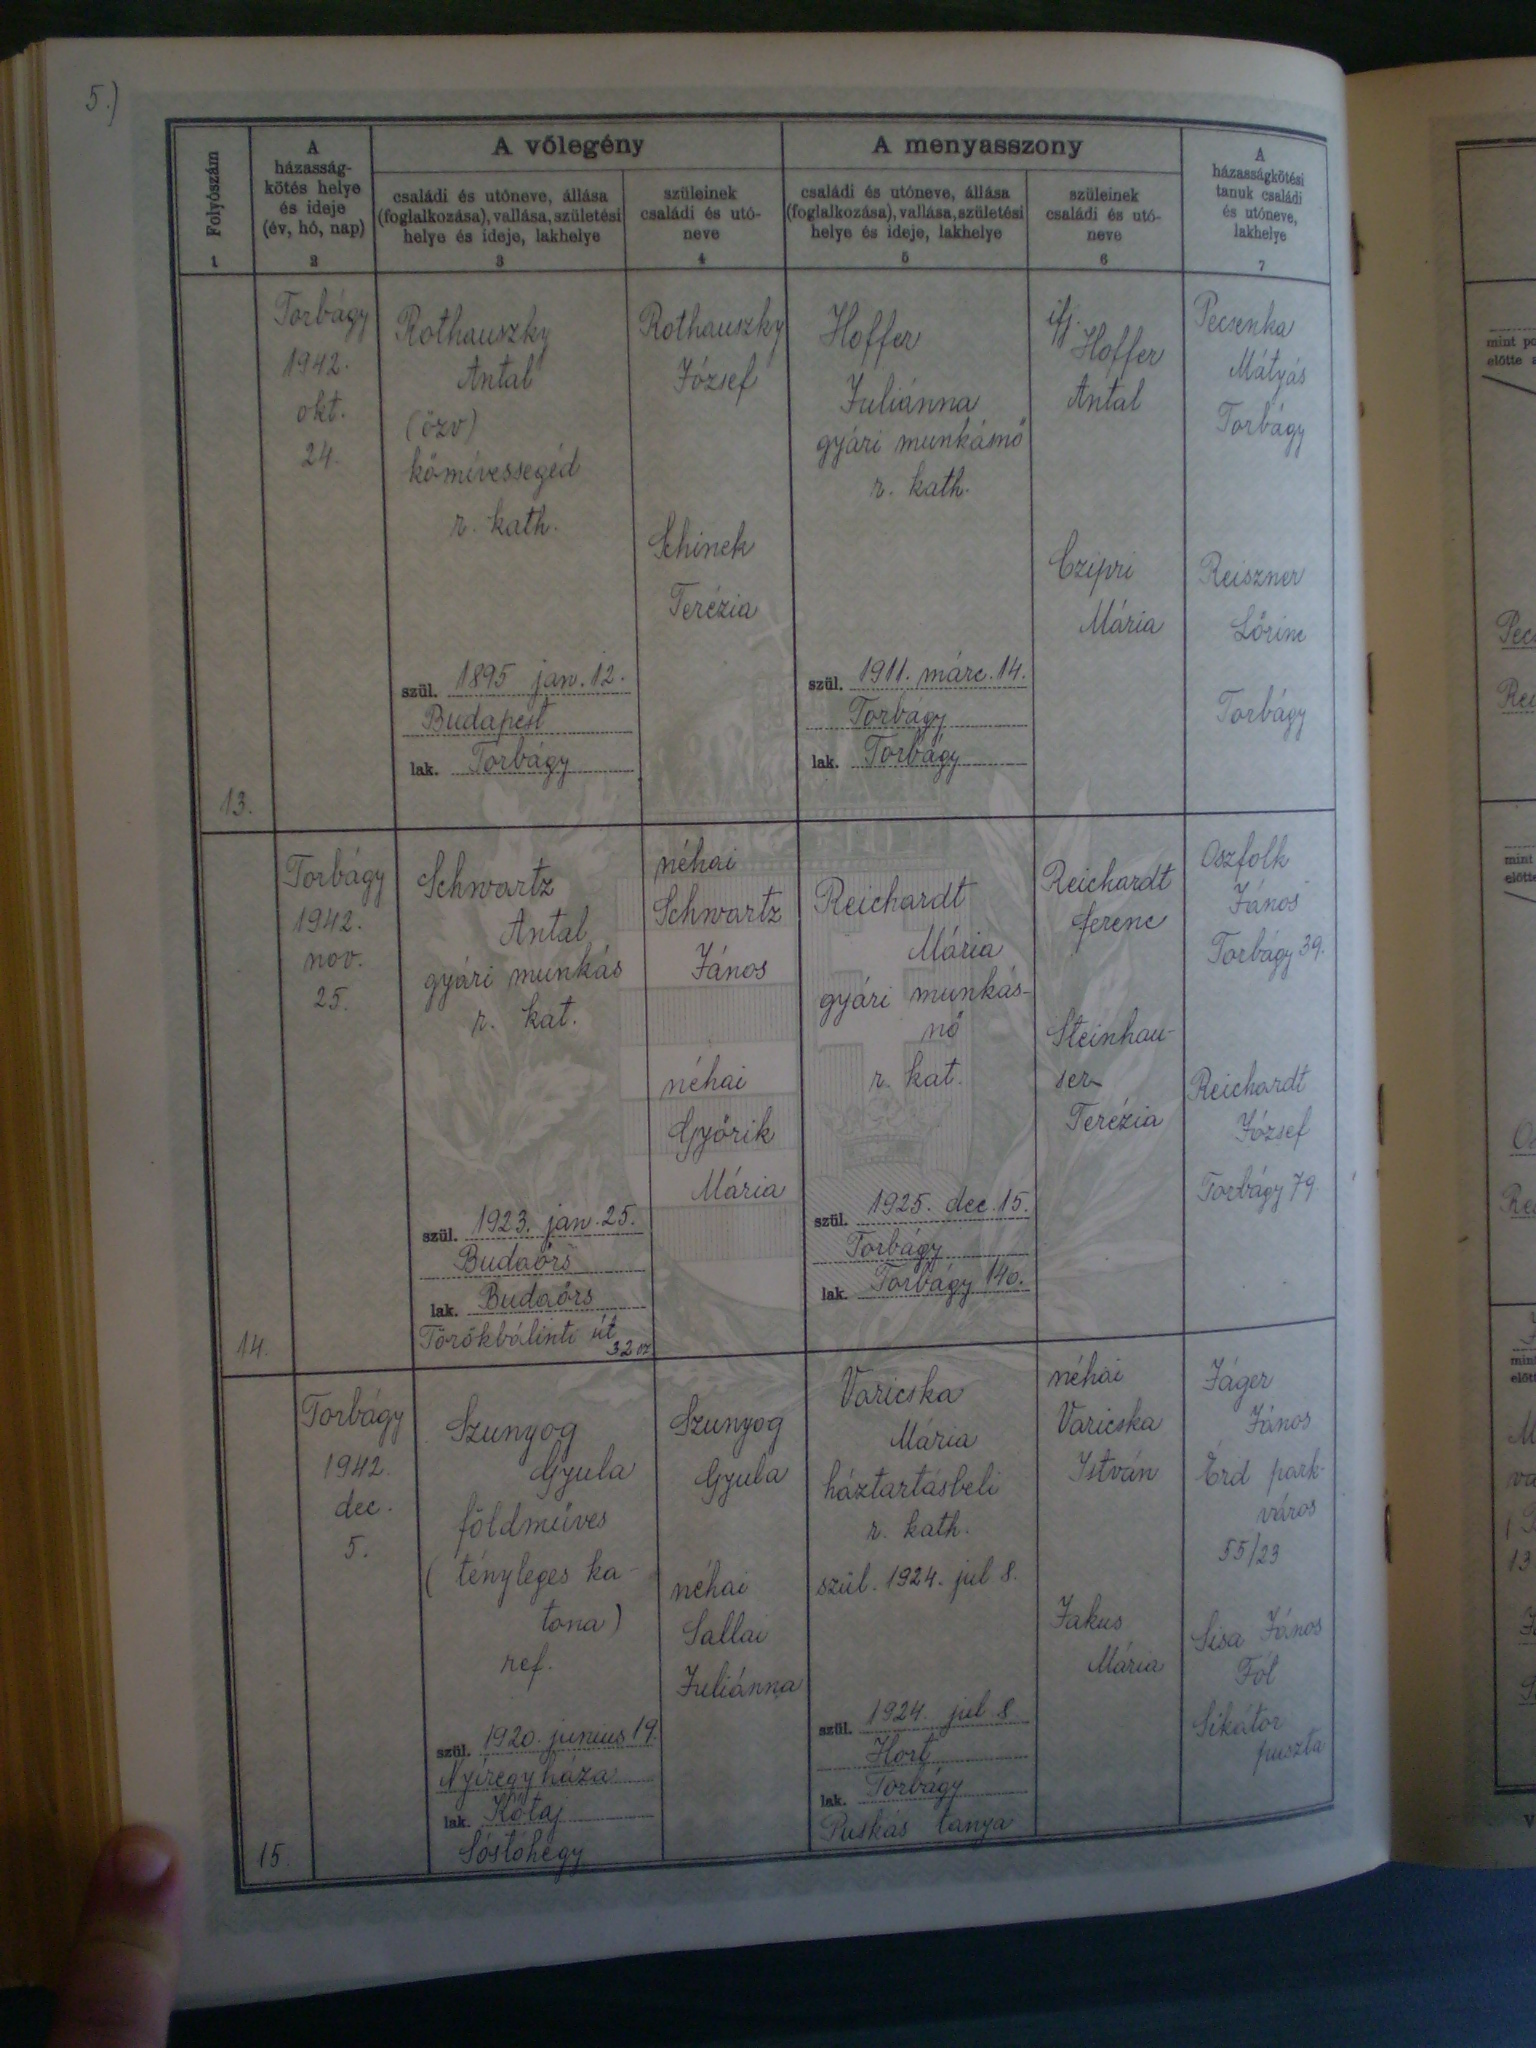 5.)
Folyószám
1
A
házasság-
kötés helye
és ideje
(év, hó, nap)
2
A vőlegény
családi és utóneve, állása
(foglalkozása), vallása, születési
helye és ideje, lakhelye
3
szüleinek
családi és utó-
neve
4
A menyasszony
családi és utóneve, állása
(foglalkozása), vallása, születési
helye és ideje, lakhelye
5
szüleinek
családi és utó-
neve
6
A
házasságkötési
tanuk családi
és utóneve,
lakhelye
7
13.
Torbágy
1942.
okt.
24.
Rothauszky
Antal
(özv)
kőmívessegéd
r. kath.
szül. 1895 jan. 12.
Budapest
lak. Torbágy
Rothauszky
József
Schinek
Terézia
Hoffer
Juliánna
gyári munkásnő
r. kath.
szül. 1911. márc. 14.
Torbágy
lak. Torbágy
ifj.
Hoffer
Antal
Czipri
Mária
Pecsenka
Mátyás
Torbágy
Reiszner
Lőrinc
Torbágy
14.
Torbágy
1942.
nov.
25.
Schwartz
Antal
gyári munkás
r. kat.
szül. 1923. jan. 25.
Budaörs
lak. Budaörs
Törökbálinti út
32 sz
néhai
Schwartz
János
néhai
Györik
Mária
Reichardt
Mária
gyári munkás-
nő
r. kat.
szül. 1925. dec. 15.
Torbágy
lak. Torbágy 140.
Reichardt
ferenc
Steinhau-
ser
Terézia
Oszfolk
János
Torbágy 39.
Reichardt
József
Torbágy 79
15.
Torbágy
1942.
dec.
5.
Szunyog
Gyula
földműves
(tényleges ka-
tona)
ref.
szül. 1920. junius 19.
Nyíregyháza
lak. Kótaj
Sóstóhegy
Szunyog
Gyula
néhai
Sallai
Juliánna
Varicska
Mária
háztartásbeli
r. kath.
szül. 1924. jul 8.
szül. 1924. jul 8
Hort
lak. Torbágy
Puskás tanya
néhai
Varicska
István
Jakus
Mária
Jáger
János
Érd park-
város
55/23
Sisa János
Fót
Sikátor
puszta
mint
előtte
mint
előtte
13